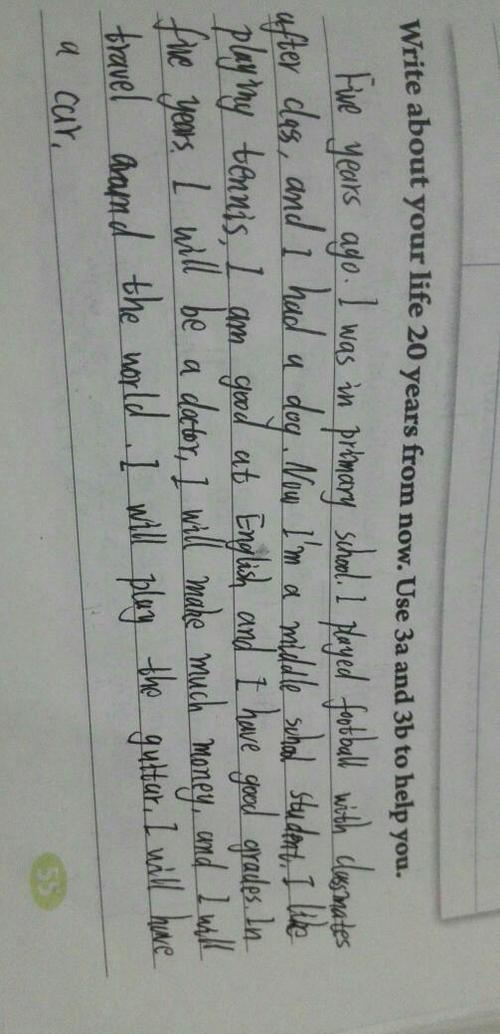 Write about your life 20 years from now. Use 3a and 3b to help you.
Five years ago. I was in primary school. I played football with classmates
after clas, and I had a dog. Now I'm a middle schol student. I like
playmy tennis, I am good at English and I have good grades. In
five years. I will be a dator, I will make much money, and I will
travel around the world. I will play the guttar. I will have
a car.
55